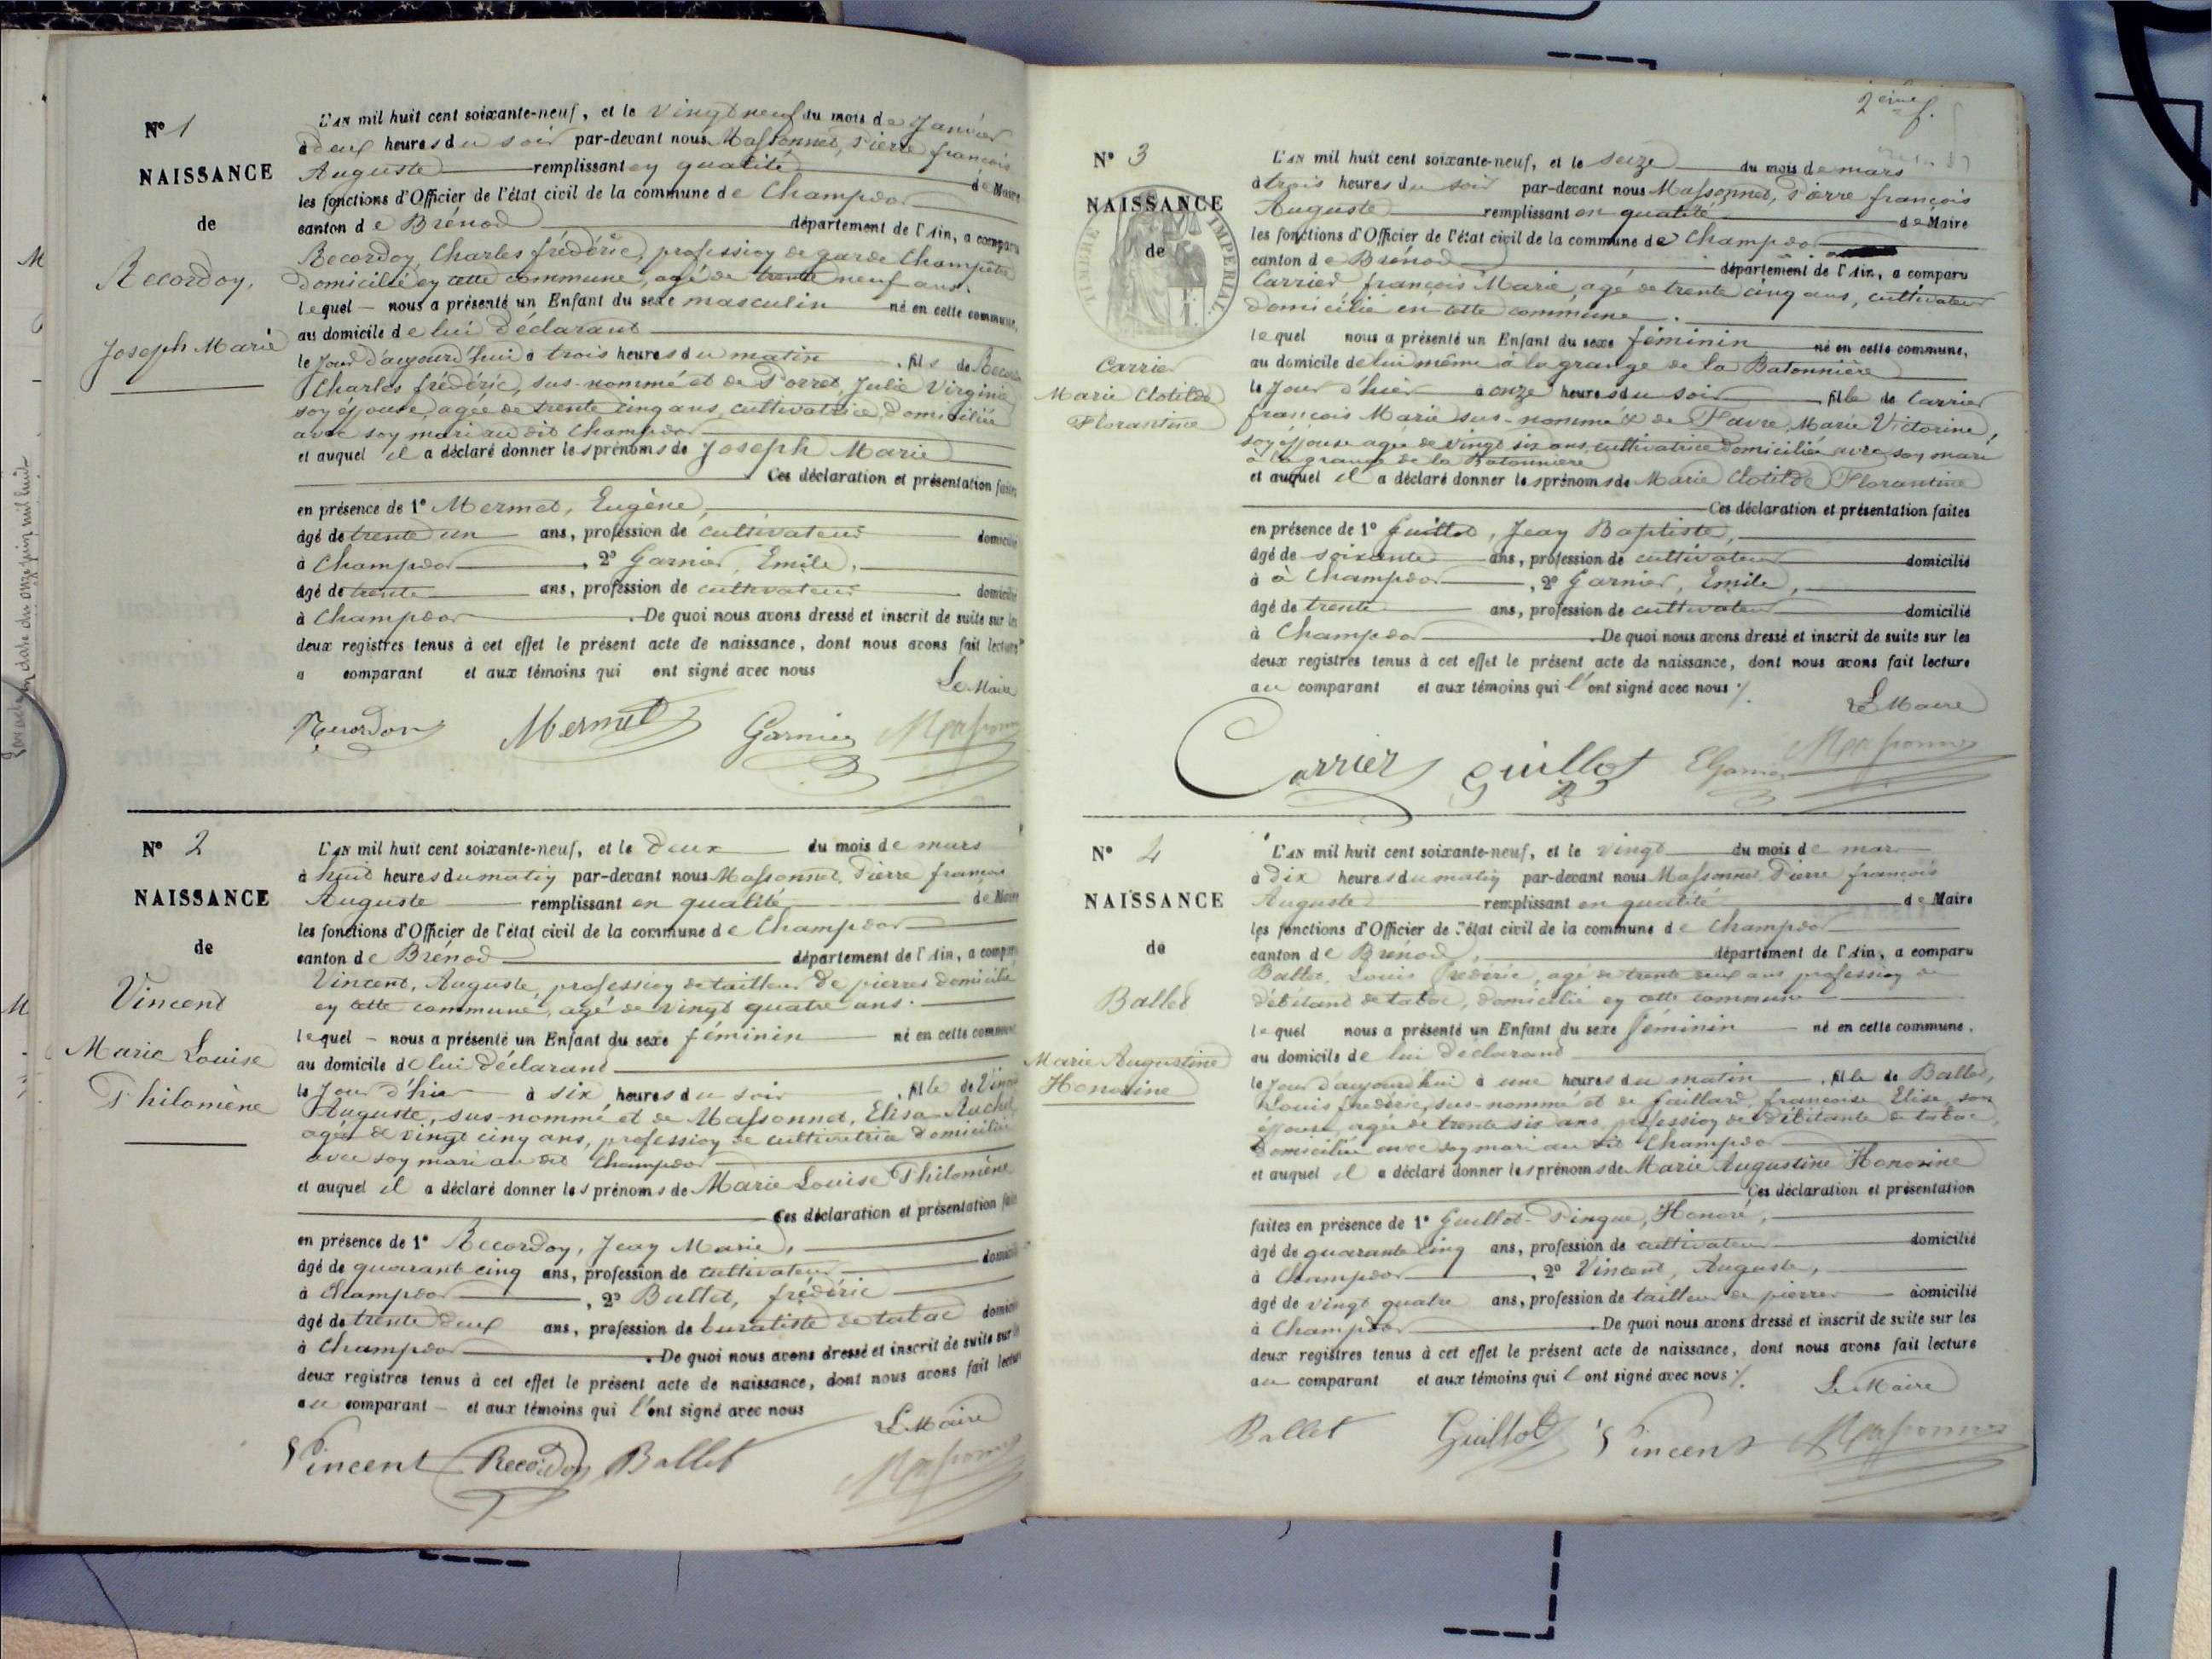 N° 1
NAISSANCE
de
Recordon,
Joseph Marie
L'AN mil huit cent soixante-neuf, et le vingt neuf du mois de Janvier
à deux heures du soir par-devant nous Massonnet, Pierre françois
Auguste remplissant en qualité de Maire
les fonctions d'Officier de l'état civil de la commune de Champdor
canton de Brénod département de l'Ain, a comparu
Recordon, Charles frédéric, profession de garde Champêtre
domicilié en cette commune, agé de trente neuf ans.
lequel nous a présenté un Enfant du sexe masculin né en cette commune,
au domicile de lui déclarant
le Jour d'aujourd'hui à trois heures du matin, fils de
Charles frédéric, sus-nommé et de Porret, Julie Virginie
son épouse, agée de trente cinq ans, cultivatrice, domiciliée
avec son mari au dit Champdor
et auquel il a déclaré donner les prénoms de Joseph Marie
Ces déclaration et présentation faites
en présence de 1° Mermet, Eugène,
âgé de trente un ans, profession de cultivateur domicilié
à Champdor, 2° Garnier, Emile,
âgé de trente ans, profession de cultivateur domicilié
à Champdor. De quoi nous avons dressé et inscrit de suite sur les
deux registres tenus à cet effet le présent acte de naissance, dont nous avons fait lecture
a comparant et aux témoins qui ont signé avec nous
Le Maire
Recordon Mermet Garnier Massonnet
N° 2
NAISSANCE
de
Vincent
Marie Louise
Philomène
L'AN mil huit cent soixante-neuf, et le deux du mois de mars
à huit heures du matin par-devant nous Massonnet, Pierre françois
Auguste remplissant en qualité de Maire
les fonctions d'Officier de l'état civil de la commune de Champdor
canton de Brénod département de l'Ain, a comparu
Vincent, Auguste, profession de tailleur de pierres domicilié
en cette commune, agé de vingt quatre ans.
lequel nous a présenté un Enfant du sexe féminin né en cette commune
au domicile de lui déclarant
le Jour d'hier à six heures du soir, fille de Vincent
Auguste, sus-nommé et de Massonnet, Elisa Rachel
agée de vingt cinq ans, profession de cultivatrice domiciliée
avec son mari au dit Champdor
et auquel il a déclaré donner les prénoms de Marie Louise Philomène
Ces déclaration et présentation faites
en présence de 1° Recordon, Jean Marie,
âgé de quarante cinq ans, profession de cultivateur domicilié
à Champdor, 2° Ballet, frédéric
âgé de trente deux ans, profession de buraliste de tabac domicilié
à Champdor. De quoi nous avons dressé et inscrit de suite sur les
deux registres tenus à cet effet le présent acte de naissance, dont nous avons fait lecture
au comparant et aux témoins qui l'ont signé avec nous
Le Maire
Vincent Recordon Ballet Massonnet
2ème f.
N° 3
NAISSANCE
de
TIMBRE IMPERIAL.
Carrier
Marie Clotilde
Florantine
L'AN mil huit cent soixante-neuf, et le seize du mois de mars
à trois heures du soir par-devant nous Massonnet, Pierre françois
Auguste remplissant en qualité de Maire
les fonctions d'Officier de l'état civil de la commune de Champdor
canton de Brénod département de l'Ain, a comparu
Carrier françois Marie, agé de trente cinq ans, cultivateur
domicilié en cette commune.
lequel nous a présenté un Enfant du sexe féminin né en cette commune,
au domicile de lui même à la grange de la Batonnière
le Jour d'hier à onze heures du soir fille de Carrier
françois Marie sus-nommé & de Favre, Marie Victorine,
son épouse agée de vingt six ans, cultivatrice domiciliée avec son mari
à la grange de la Batonnière
et auquel il a déclaré donner les prénoms de Marie Clotilde Florantine
Ces déclaration et présentation faites
en présence de 1° Guillot, Jean Baptiste,
âgé de soixante ans, profession de cultivateur domicilié
à à Champdor, 2° Garnier, Emile,
âgé de trente ans, profession de cultivateur domicilié
à Champdor. De quoi nous avons dressé et inscrit de suite sur les
deux registres tenus à cet effet le présent acte de naissance, dont nous avons fait lecture
au comparant et aux témoins qui l'ont signé avec nous ./.
Le Maire
Carrier Guillot EGarnier Massonnet
N° 4
NAISSANCE
de
Ballet
Marie Augustine
Honorine
L'AN mil huit cent soixante-neuf, et le vingt du mois de mars
à dix heures du matin par-devant nous Massonnet Pierre françois
Auguste remplissant en qualité de Maire
les fonctions d'Officier de l'état civil de la commune de Champdor
canton de Brénod, département de l'Ain, a comparu
Ballet, Louis frédéric, agé de trente deux ans profession de
débitant de tabac, domicilié en cette commune
lequel nous a présenté un Enfant du sexe féminin né en cette commune,
au domicile de lui déclarant
le Jour d'aujourd'hui à une heures du matin, fille de Ballet,
Louis frédéric, sus-nommé et de faillard, françoise Elise, son
épouse, agée de trente six ans, profession de débitante de tabac,
domiciliée avec son mari au dit Champdor
et auquel il a déclaré donner les prénoms de Marie Augustine Honorine
Ces déclaration et présentation
faites en présence de 1° Guillot-Pingue, Honoré,
âgé de quarante cinq ans, profession de cultivateur domicilié
à Champdor, 2° Vincent, Auguste,
âgé de vingt quatre ans, profession de tailleur de pierres domicilié
à Champdor. De quoi nous avons dressé et inscrit de suite sur les
deux registres tenus à cet effet le présent acte de naissance, dont nous avons fait lecture
au comparant et aux témoins qui l'ont signé avec nous ./.
Le Maire
Ballet Guillot Vincent Massonnet